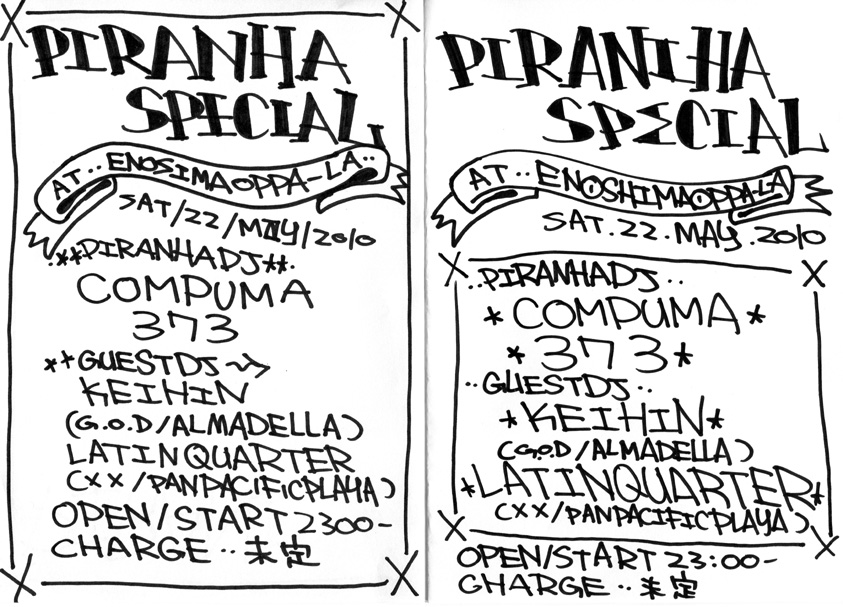 PIRANHA
SPECIAL
AT..ENOSIMAOPPA-LA..
SAT/22/MAY/2010
.**PIRANHADJ**.
COMPUMA
373
**GUESTDJ~>
KEIHIN
(G.O.D/ALMADELLA)
LATINQUARTER
(××/PANPACIFICPLAYA)
OPEN/START 2300-
CHARGE..未定
PIRANHA
SPECIAL
AT..ENOSHIMAOPPA-LA
SAT.22.MAY.2010
..PIRANHADJ..
*COMPUMA*
*373*
..GUESTDJ..
*KEIHIN*
(G.O.D/ALMADELLA)
*LATINQUARTER*
(××/PANPACIFICPLAYA)
OPEN/START 23:00-
CHARGE..未定